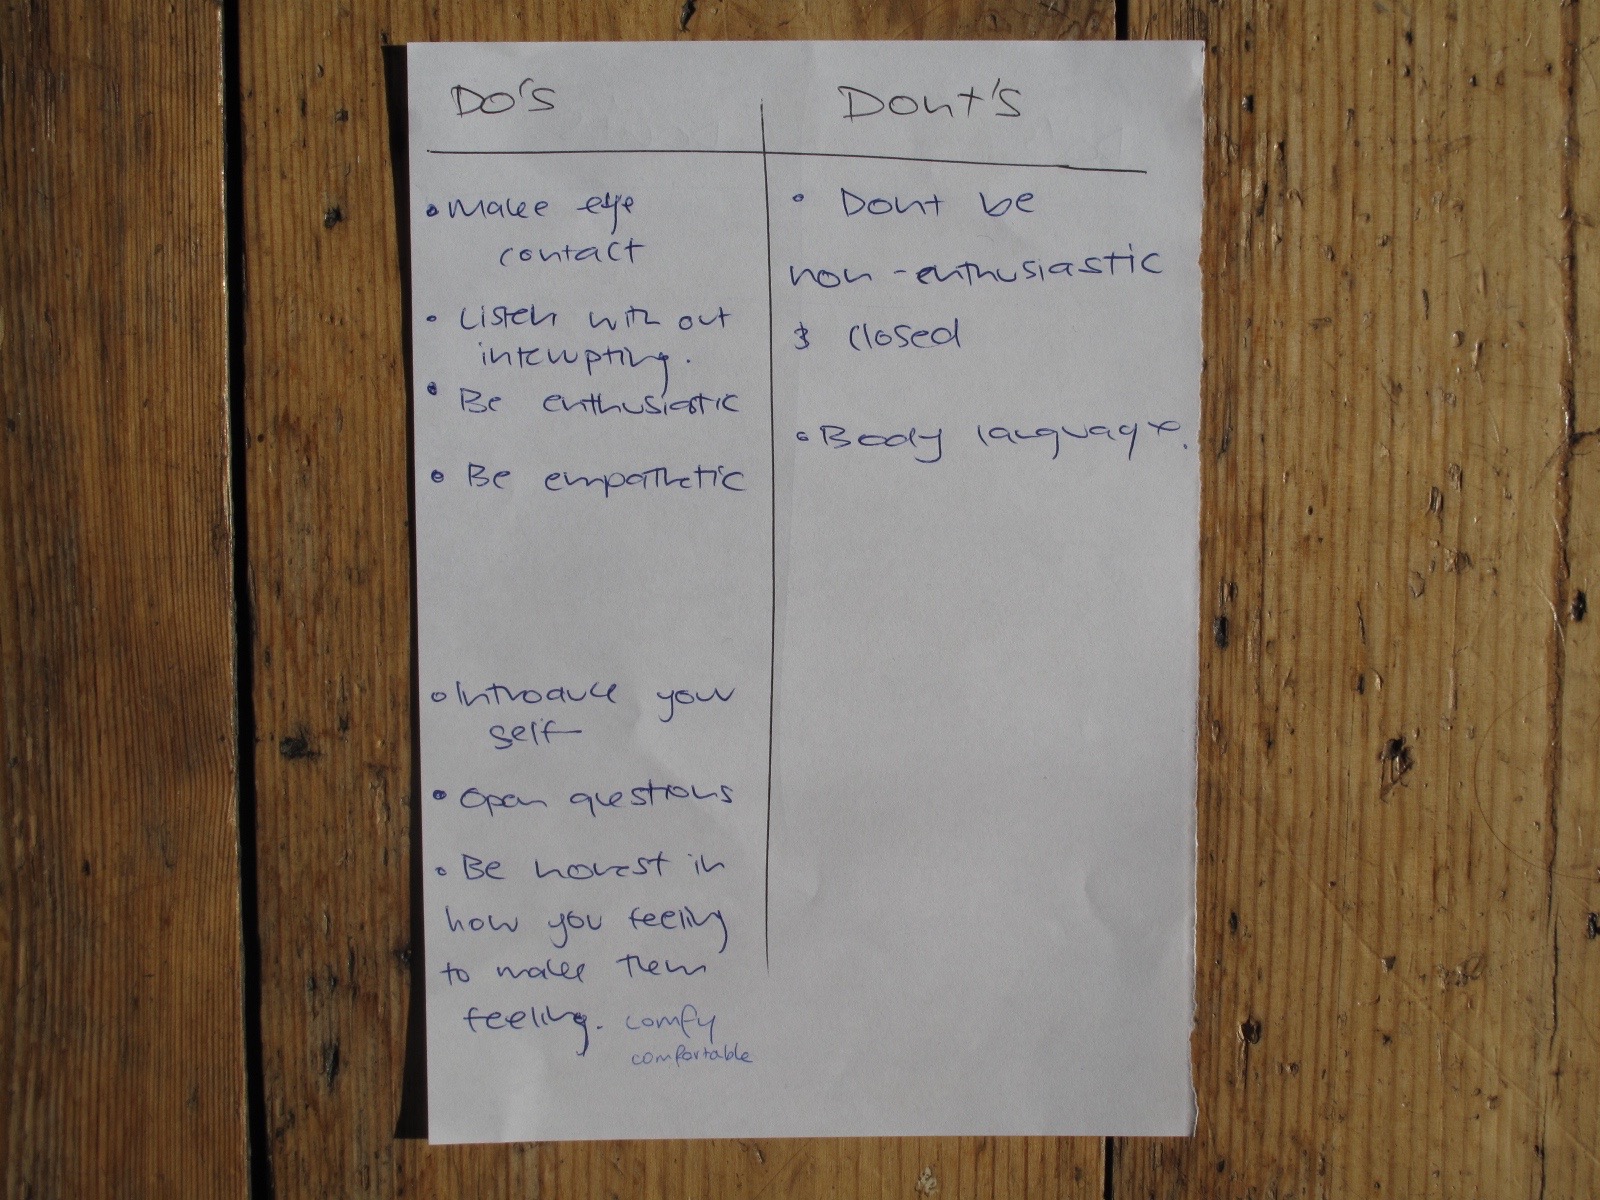 DO'S
• Make eye
contact
• Listen with out
interupting.
• Be enthusiastic
• Be empathetic
• Introduce your
self
• Open questions
• Be honest in
how you feeling
to make them
feeling. comfy
comfortable
Dont's
• Dont be
non-enthusiastic
& closed
• Body language.